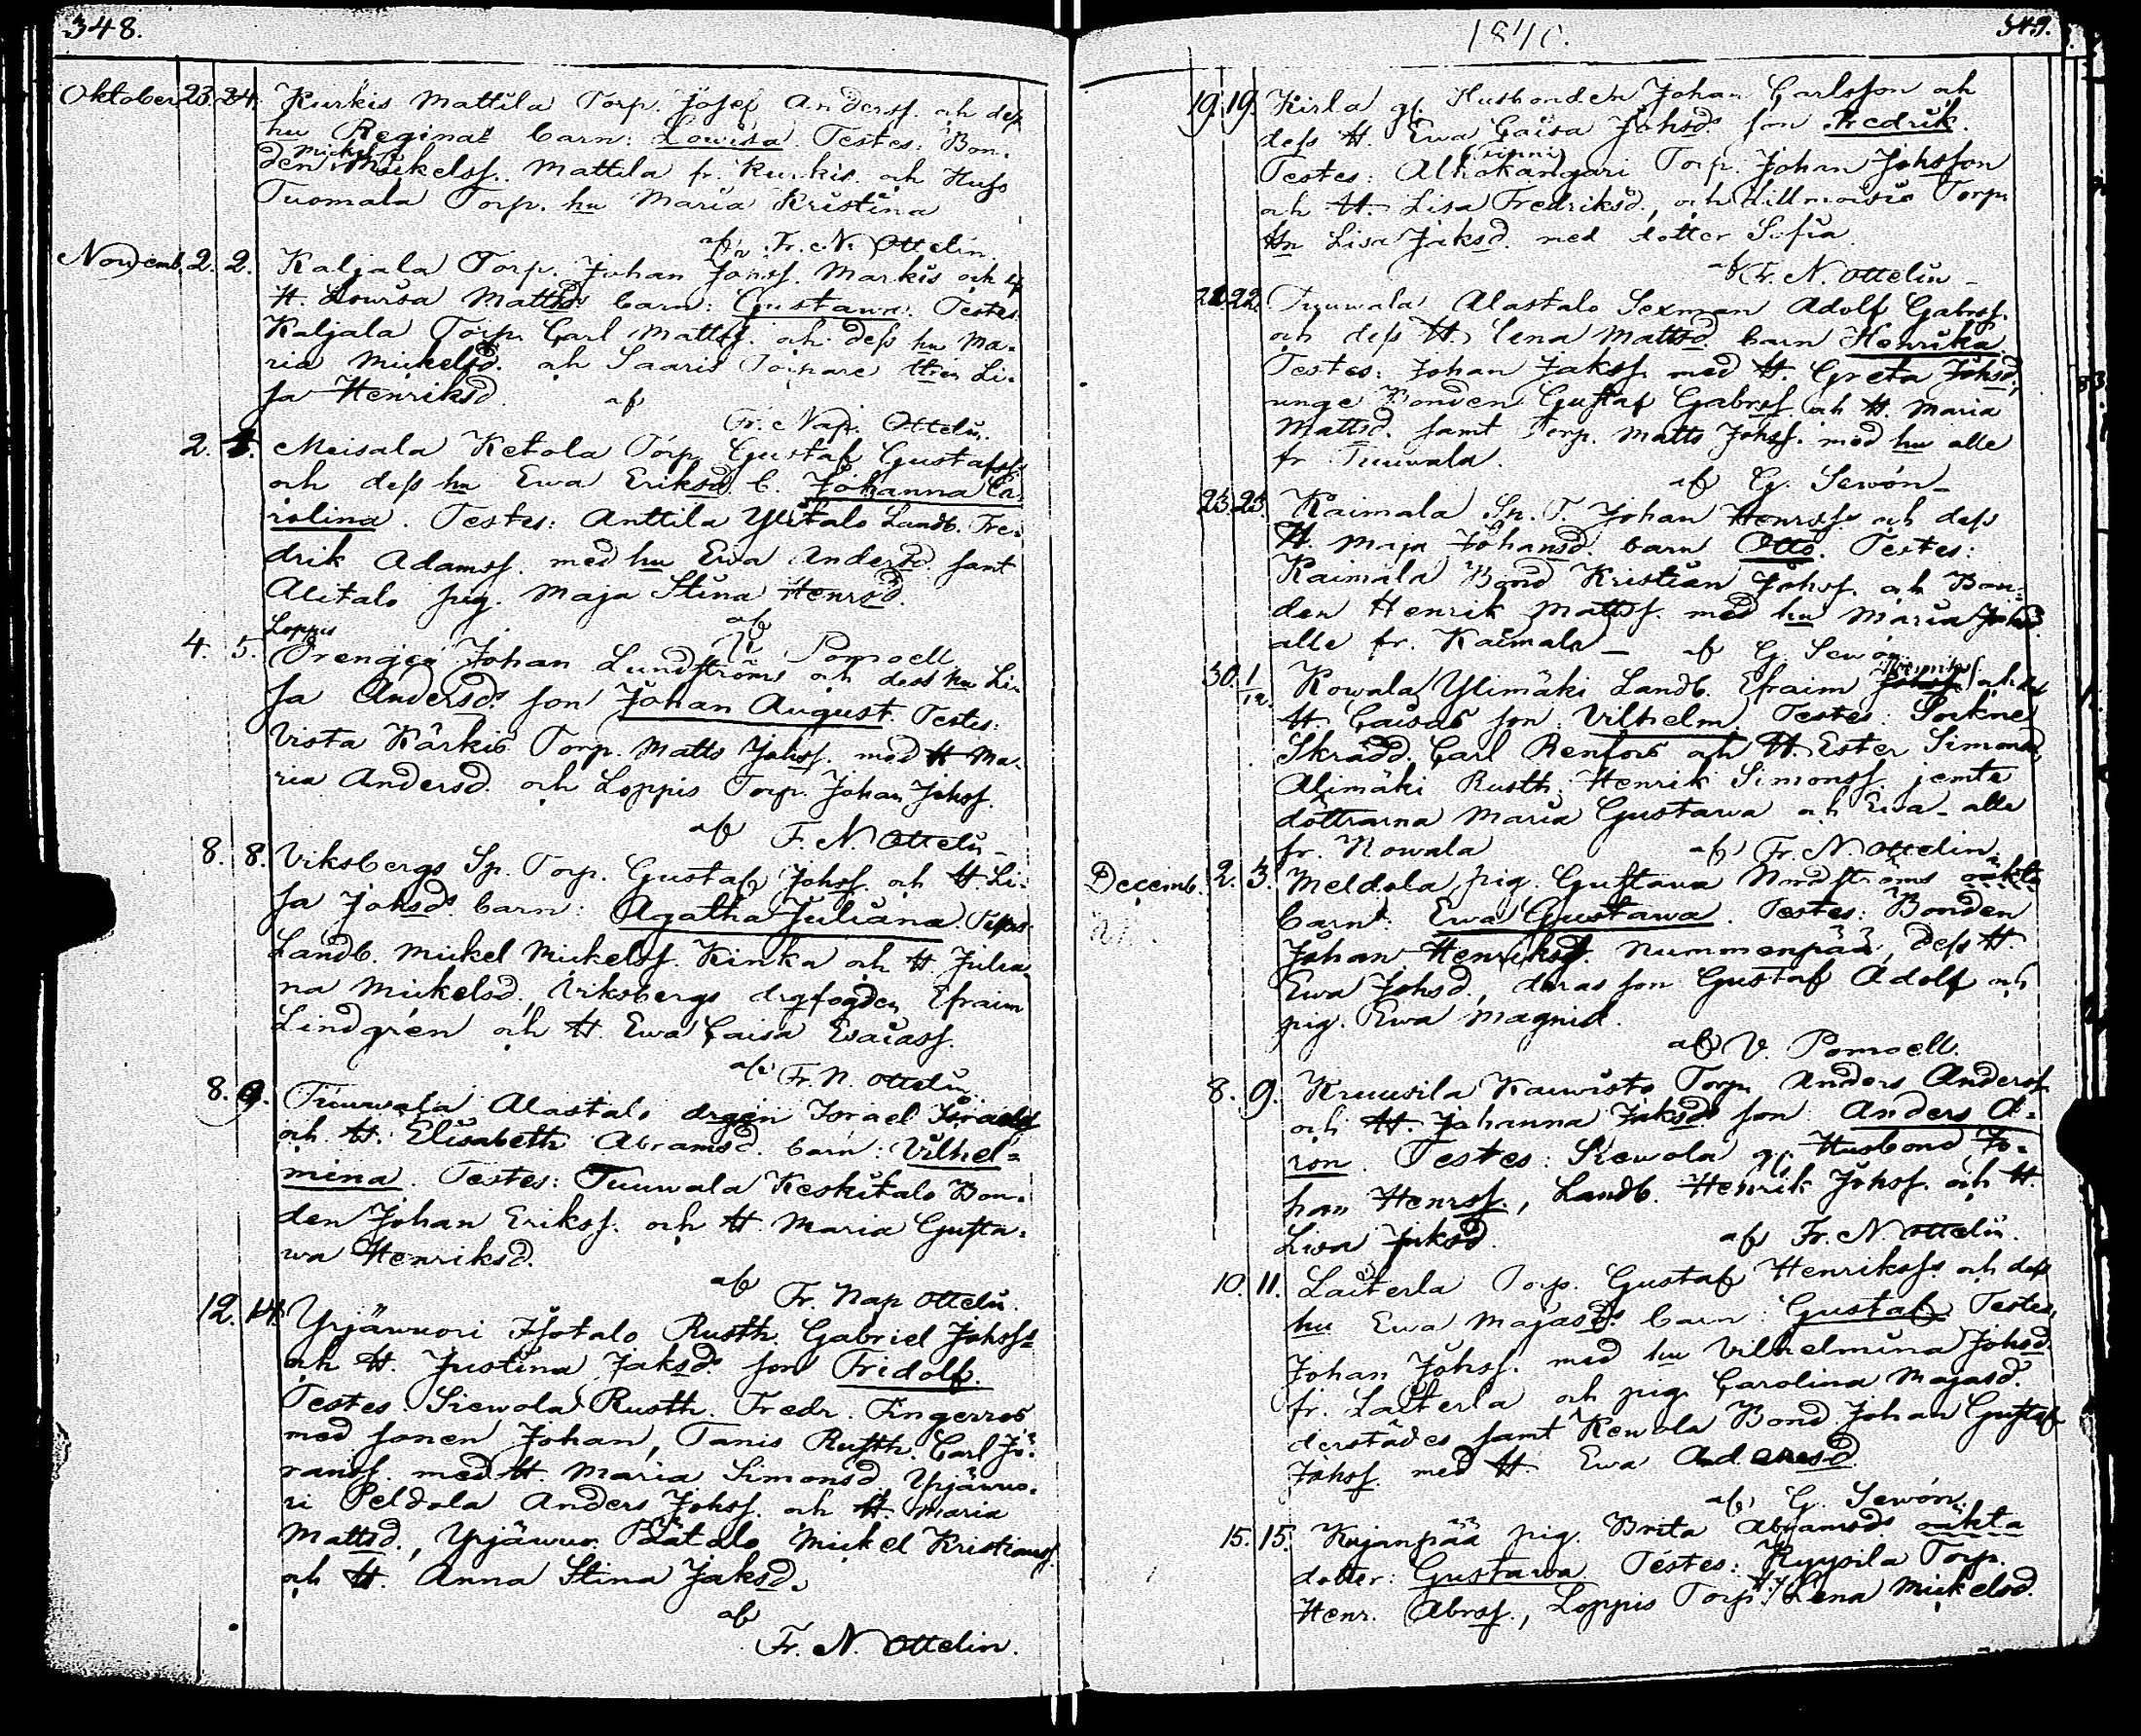 348.
Oktober 23. 24. Kurkis Mattila Torp. Josef Anderss. och dess
hu Reginas barn: Lowisa. Testes: Bon-
den Mickel Mickelss. Mattila fr. Kurkis och Huso
Tuomala Torp. hu Maria Kristina
af Fr. N. Ottelin.
Novemb. 2. 2. Kaljala Torp. Johan Johss. Markis och
H. Lowisa Mattsds barn: Gustawa. Testes
Kaljala Torp. Carl Mattss. och dess hu Ma-
ria Mickelsd. och Saaris Torpare Li-
sa Henriksd. af
Fr. Nap. Ottelin.
2. 4. Meisala Ketola Torp. Gustaf Gustafss.
och dess hu Ewa Eriksd. b. Johanna Ca-
rolina. Testes: Anttila Ylitalo Landb. Fre-
drik Adamss. med hu Ewa Andersd. samt
Alitalo pig. Maja Stina Henrsd.
af
V. Pomoell
4. 5. Loppis
Drengen Johan Lundströms och dess hu Li-
sa Andersds son Johan August. Testes:
Vista Kärkis Torp. Matts Johss. med H. Ma-
ria Andersd. och Loppis Torp. Johan Johss.
af F. N. Ottelin
8. 8. Viksbergs Sp. Torp. Gustaf Johss. och H. Li-
sa Johsds. barn: Agatha Juliana. Testes
Landb. Mickel Mickelss. Kinka och H. Julia-
na Mickelsd., Viksbergs drgfogden Efraim
Lindgrén och H. Ewa Caisa Esaiass.
af Fr. N. Ottelin
8. 9. Tuuwala Alastalo drgen Israel Israelss
och H. Elisabeth Abramsd. barn: Vilhel-
mina. Testes: Tuuwala Keskitalo Bon-
den Johan Erikss. och H. Maria Gusta-
wa Henriksd.
af
Fr. Nap Ottelin.
12. 14. Yrjänwuori Isotalo Rusth. Gabriel Johss.
och H. Justina Jaksds. son Fridolf.
Testes Siewola Rusth. Fredr. Fingerroos
med sonen Johan, Tanis Rusth. Carl Jö-
ranss. med H. Maria Simonsd. Yrjänwuo-
ri Peldola Anders Johss. och H. Maria
Mattsd., Yrjänwuo. Mickel Kristianss.
och H. Anna Stina Jaksd.
af
Fr. N. Ottelin.
1840.
349.
19. 19. Kirla gl. Husbonden Johan Carlsson och
dess H. Ewa Caisa Johsds. son Fredrik.
Testes: Torp. Johan Johsson
och H. Lisa Fredriksd., och Hillmoisio Torp.
Hn Lisa Jaksd. med dotter Sofia.
af Fr. N. Ottelin
22. 22. Tuuwala Alastalo Sexman Adolf Gabrss.
och dess H. Lena Mattsd. barn Henrika.
Testes: Johan Jakss. med H. Greta Johsd.,
unge Bonden Gustaf Gabrss. och H. Maria
Mattsd. samt Torp. Matts Johss. med hu alle
fr Tuuwala.
af G. Sewón
23. 25. Kaimala Sp. T. Johan Henrss. och dess
H. Maja Johansd. barn Otto. Testes:
Kaimala Bond Kristian Johss. och Bon-
den Henrik Mattss. med hu Maria Johsd.
alle fr. Kaimala af G. Sewón.
30. 1/12. Kowala Ylimäki Landb. Efraim Henrikss. och dess
H. Caisas son: Vilhelm. Testes: Sockne
Skrädd. Carl Renfors och H. Ester Simonsd.
Alimäki Rusth. Henrik Simonss. jemte
döttrarna Maria Gustawa och Ewa alle
fr. Kowala af Fr. N. Ottelin
Decemb. 2. 3. Meldola pig. Gustawa Nordströms oäkta
barn: Ewa Gustawa. Testes: Bonden
Johan Henrikss. Nummenpää, dess H.
Ewa Johsd., deras son Gustaf Adolf och
pig. Ewa Magnid.
af V. Pomoell.
8. 9. Kruusila Kauwisto Torp. Anders Anderss.
och H. Johanna Jaksds son Anders A-
ron. Testes: Siewola gl. Husbond Jo-
han Henrss., Landb. Henrik Johss. och H.
Lisa Jaksd. af Fr. N. Ottelin.
10. 11. Laiterla Torp. Gustaf Henrikss. och dess
hu Ewa Majasds. barn Gustaf. Testes,
Johan Johss. med hu Vilhelmina Johsd.
fr. Laiterla och pig. Carolina Majasd.
derstädes samt Kewola Bond Johan Gustaf
Johss. med H. Ewa Andersd.
af G. Sewón.
15. 15. Kujanpää pig. Brita Abramsds oäkta
dotter: Gustawa. Testes: Ryysila Torp.
Henr. Abrss., Loppis Torp. H. Lena Mickelsd.